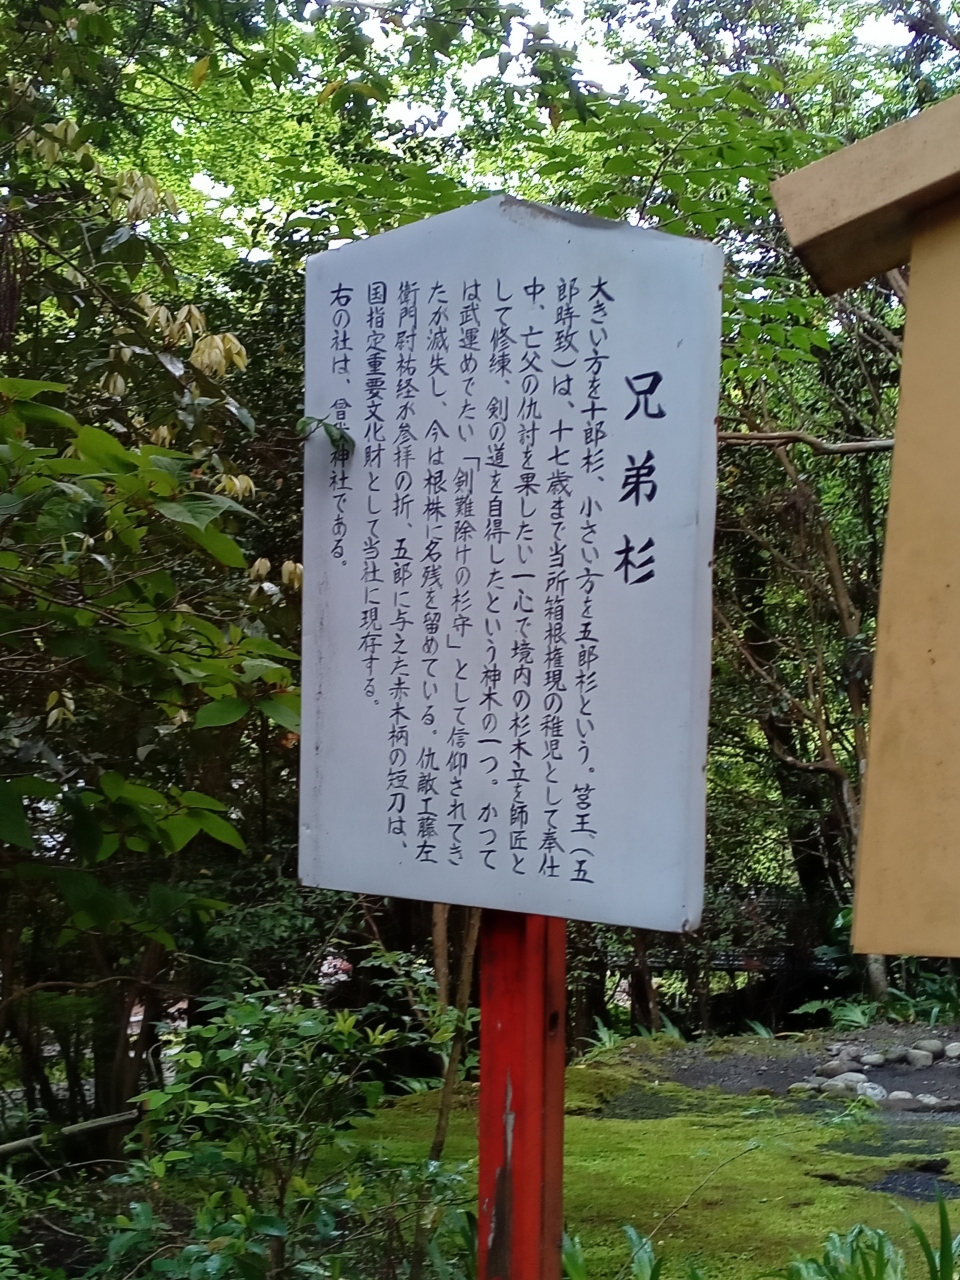 兄弟杉
大きい方を十郎杉、小さい方を五郎杉という。筥王、(五
郎時致)は、十七歳まで当所箱根権現の稚児として奉仕
中、亡父の仇討を果したい一心で境内の杉木立を師匠と
して修練、剣の道を自得したという神木の一つ。かつて
は武運めでたい「剣難除けの杉守」として信仰されてき
たが滅失し、今は根株に名残を留めている。仇敵工藤左
衛門尉祐経が参拝の折、五郎に与えた赤木柄の短刀は、
国指定重要文化財として当社に現存する。
右の社は、曽我神社である。